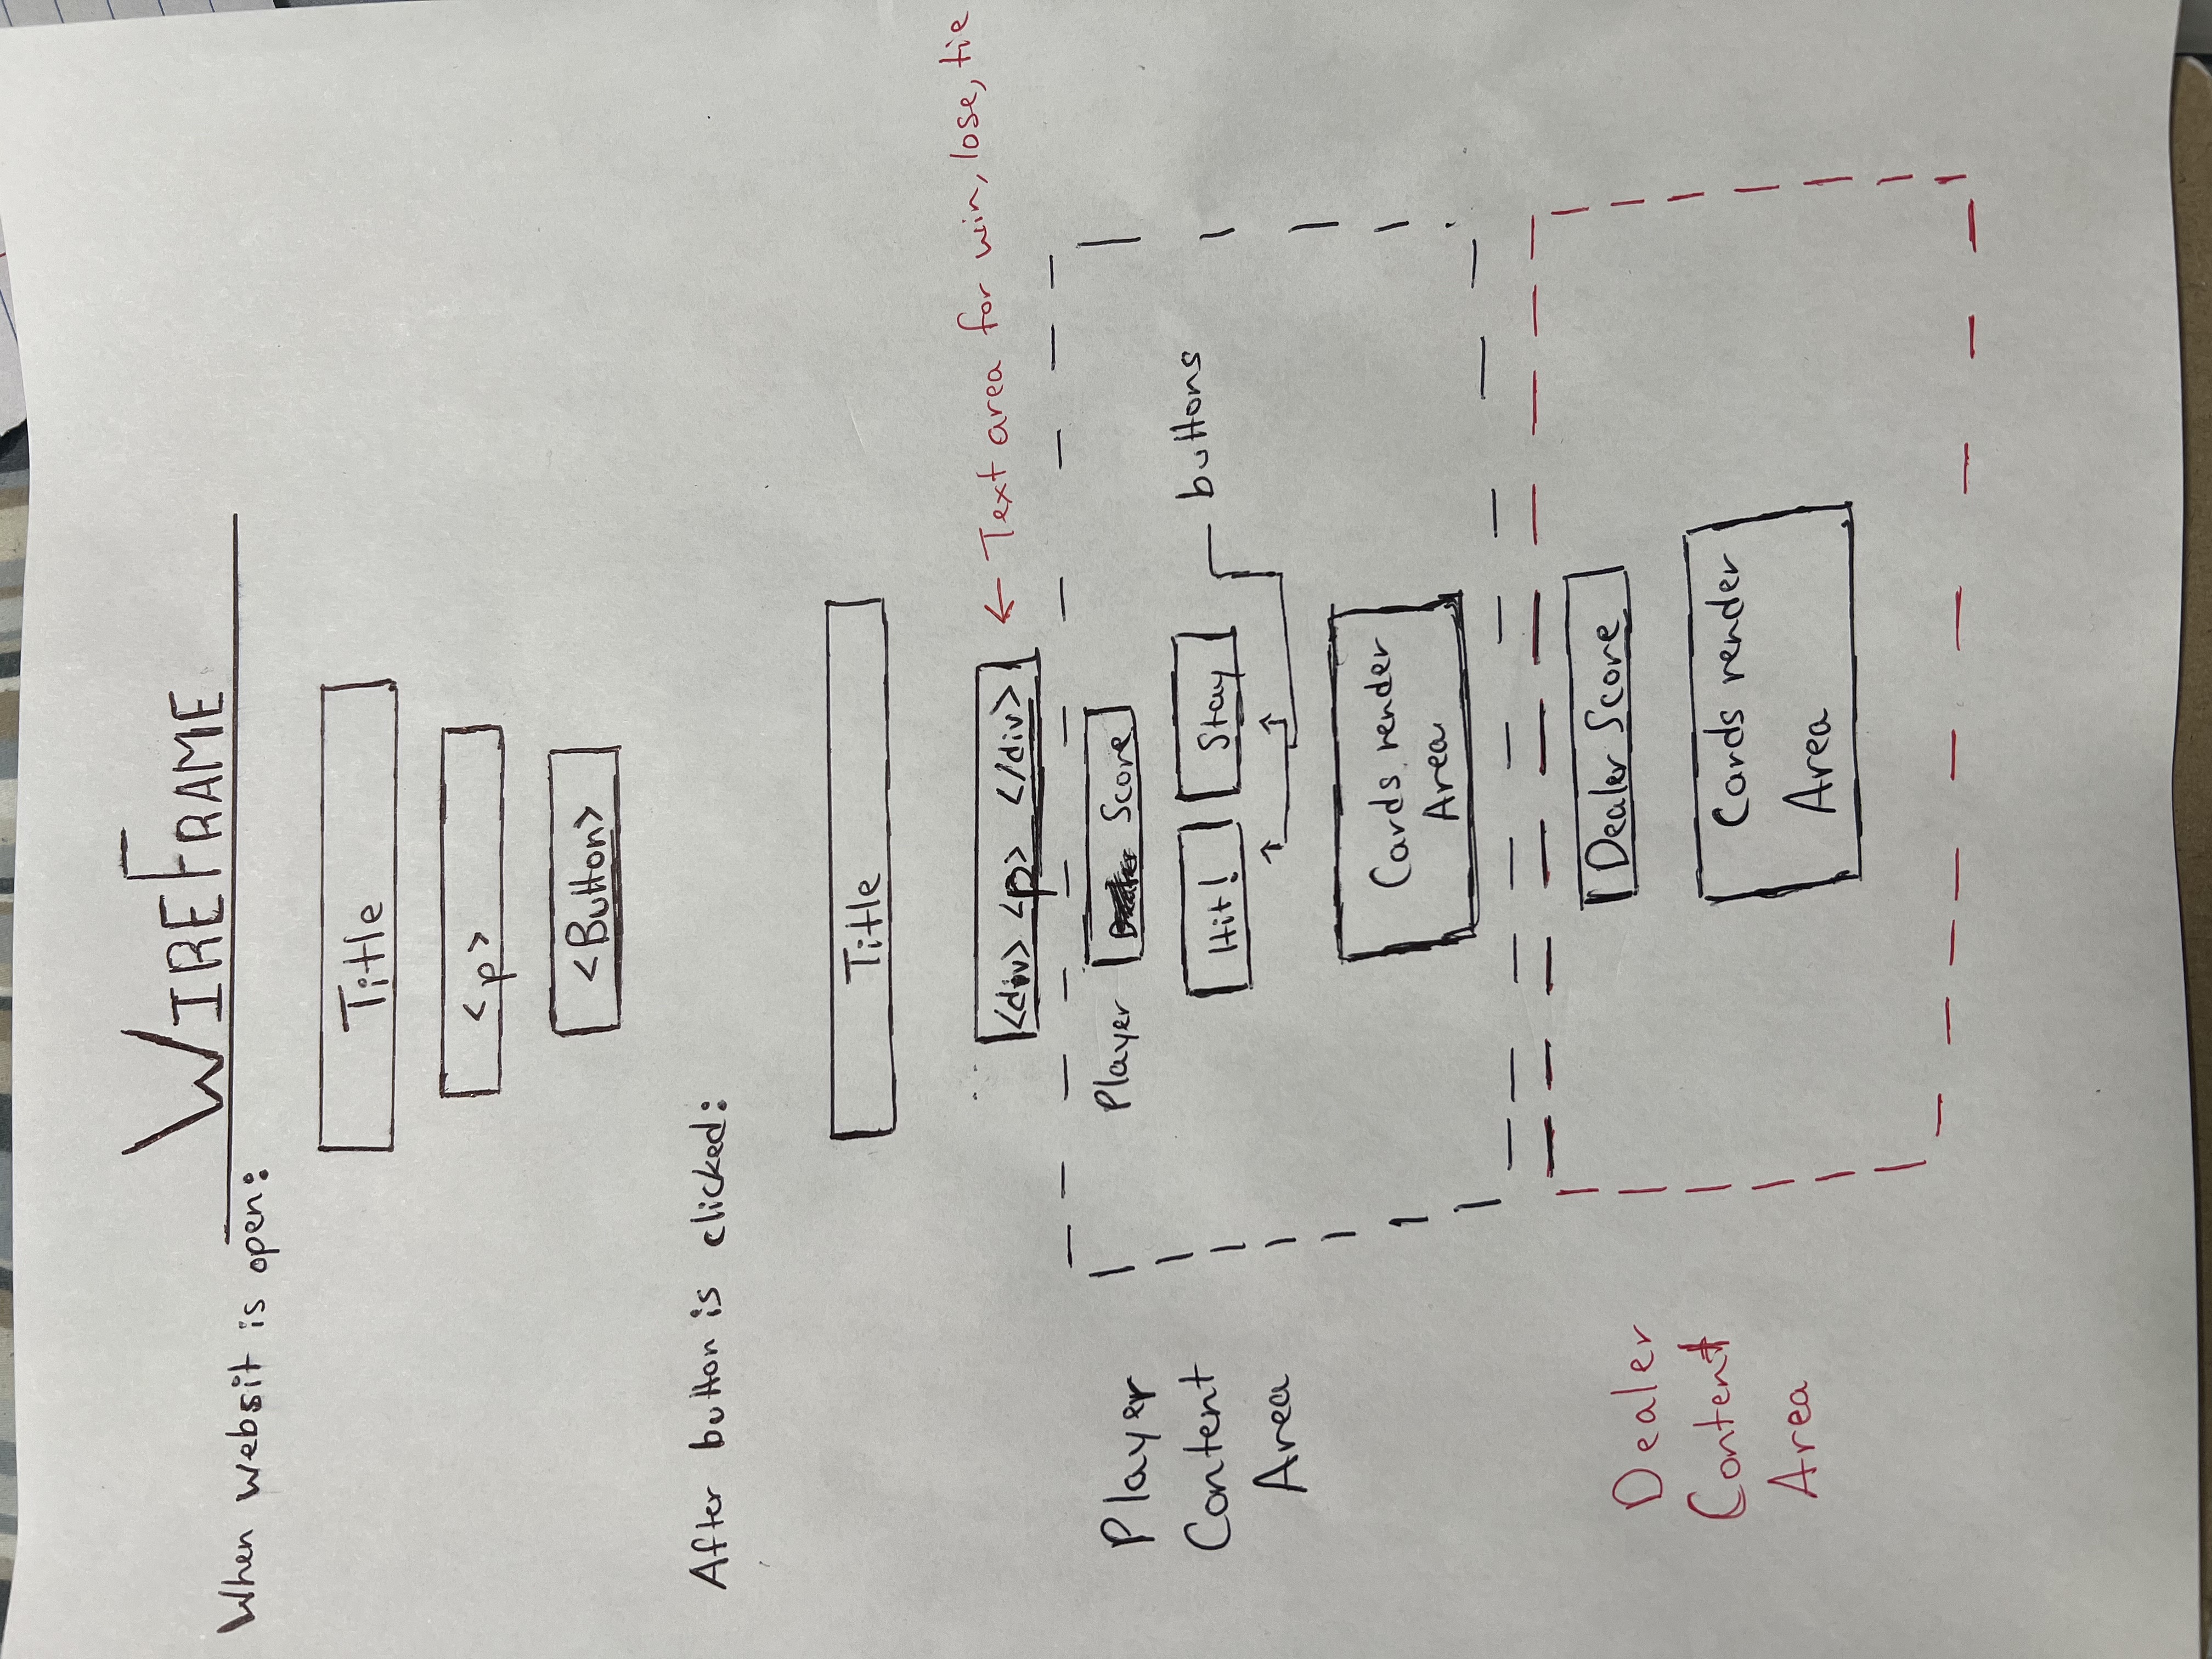 WIREFRAME
When websit is open:
Title
<p>
<Button>
After button is clicked:
Title
<div> <p> </div>
← Text area for win, lose, tie
Player
Content
Area
Player Score
Hit! Stay
buttons
Cards render
Area
Dealer
Content
Area
Dealer Score
Cards render
Area